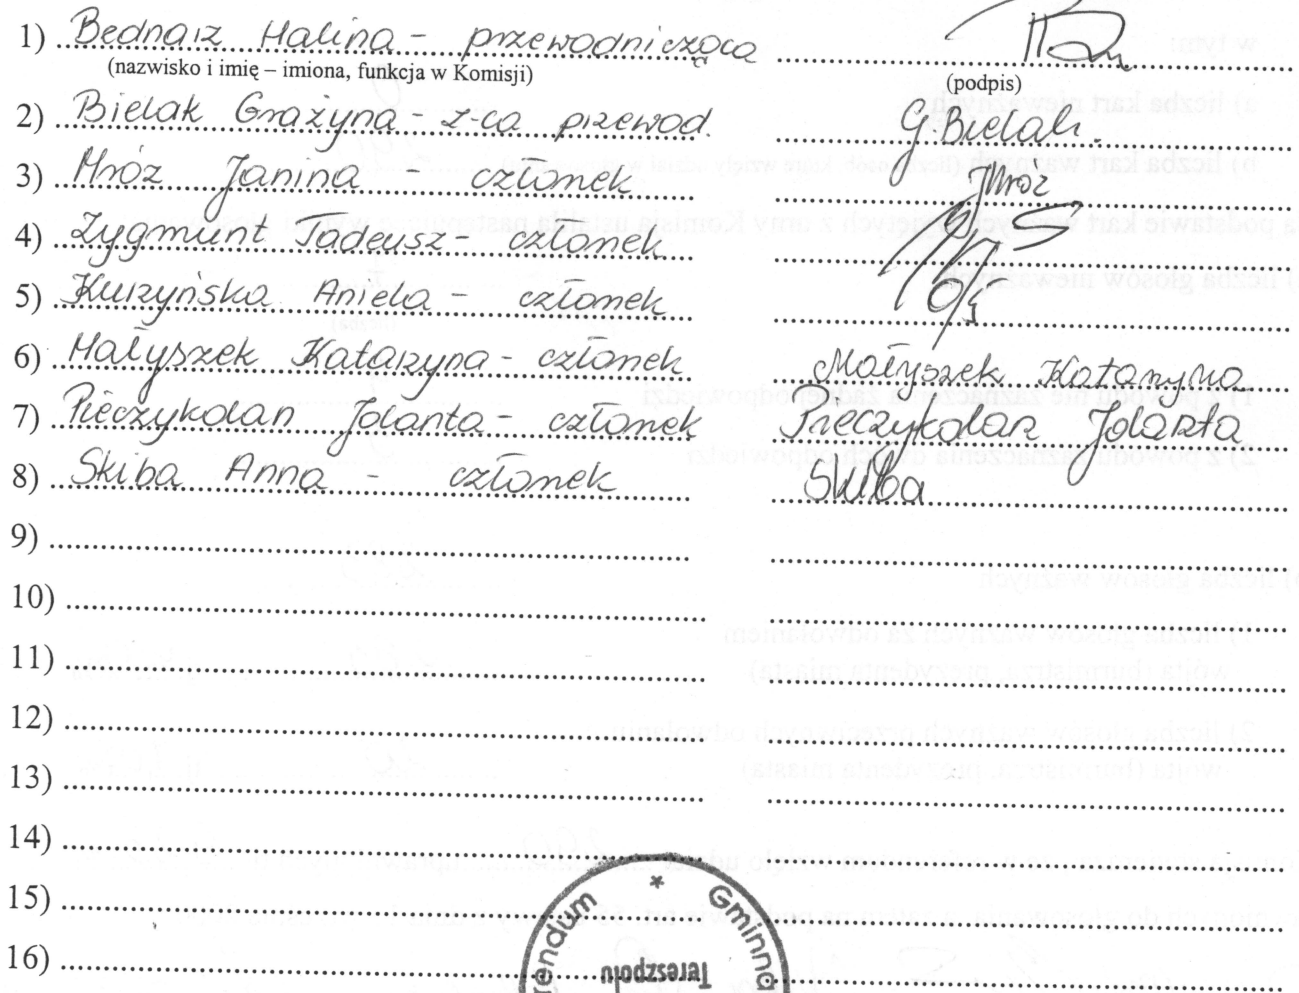 1) Bednarz Halina - przewodnicząca
(nazwisko i imię – imiona, funkcja w Komisji) (podpis)
2) Bielak Grażyna - z-ca przewod. G. Bielak
3) Mróz Janina - członek JMróz
4) Zygmunt Tadeusz - członek
5) Kurzyńska Aniela - członek
6) Małyszek Katarzyna - członek Małyszek Katarzyna
7) Pieczykolan Jolanta - członek Pieczykolan Jolanta
8) Skiba Anna - członek Skiba
9)
10)
11)
12)
13)
14)
15)
16)
Gminn
Tereszpolu